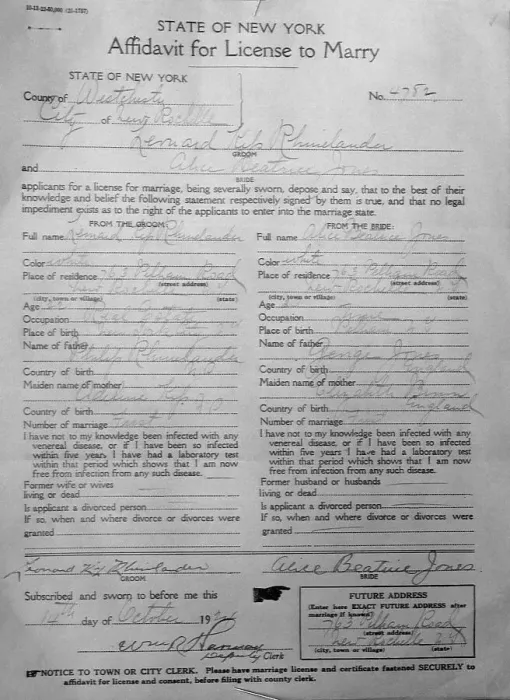 STATE OF NEW YORK
Affidavit for License to Marry
STATE OF NEW YORK
County of Westchester
No. 4752
City of New Rochelle
Leonard Kip Rhinelander
GROOM
and Alice Beatrice Jones
BRIDE
applicants for a license for marriage, being severally sworn, depose and say, that to the best of their
knowledge and belief the following statement respectively signed by them is true, and that no legal
impediment exists as to the right of the applicants to enter into the marriage state.
FROM THE GROOM:
Full name Leonard Kip Rhinelander
Color White
Place of residence 763 Pelham Road
(street address)
New Rochelle N.Y.
(city, town or village) (state)
Age
Occupation Real Estate
Place of birth New York
Name of Father
Philip Rhinelander
Country of birth U.S.
Maiden name of mother
Adelaide Kip
Country of birth
Number of marriage First
I have not to my knowledge been infected with any
venereal disease, or if I have been so infected
within five years I have had a laboratory test
within that period which shows that I am now
free from infection from any such disease.
Former wife or wives
living or dead
Is applicant a divorced person
If so, when and where divorce or divorces were
granted
FROM THE BRIDE:
Full name Alice Beatrice Jones
Color White
Place of residence 763 Pelham Road
(street address)
New Rochelle N.Y.
(city, town or village) (state)
Age
Occupation
Place of birth Pelham N.Y.
Name of Father
George Jones
Country of birth England
Maiden name of mother
Elizabeth
Country of birth England
Number of marriage
I have not to my knowledge been infected with any
venereal disease, or if I have been so infected
within five years I have had a laboratory test
within that period which shows that I am now
free from infection from any such disease.
Former husband or husbands
living or dead
Is applicant a divorced person
If so, when and where divorce or divorces were
granted
Leonard Kip Rhinelander
GROOM
Alice Beatrice Jones
BRIDE
Subscribed and sworn to before me this
14th day of October 1924
Deputy Clerk
FUTURE ADDRESS
(Enter here EXACT FUTURE ADDRESS after
marriage if known)
763 Pelham Road
(street address)
New Rochelle N.Y.
(city, town or village) (state)
NOTICE TO TOWN OR CITY CLERK. Please have marriage license and certificate fastened SECURELY to
affidavit for license and consent, before filing with county clerk.